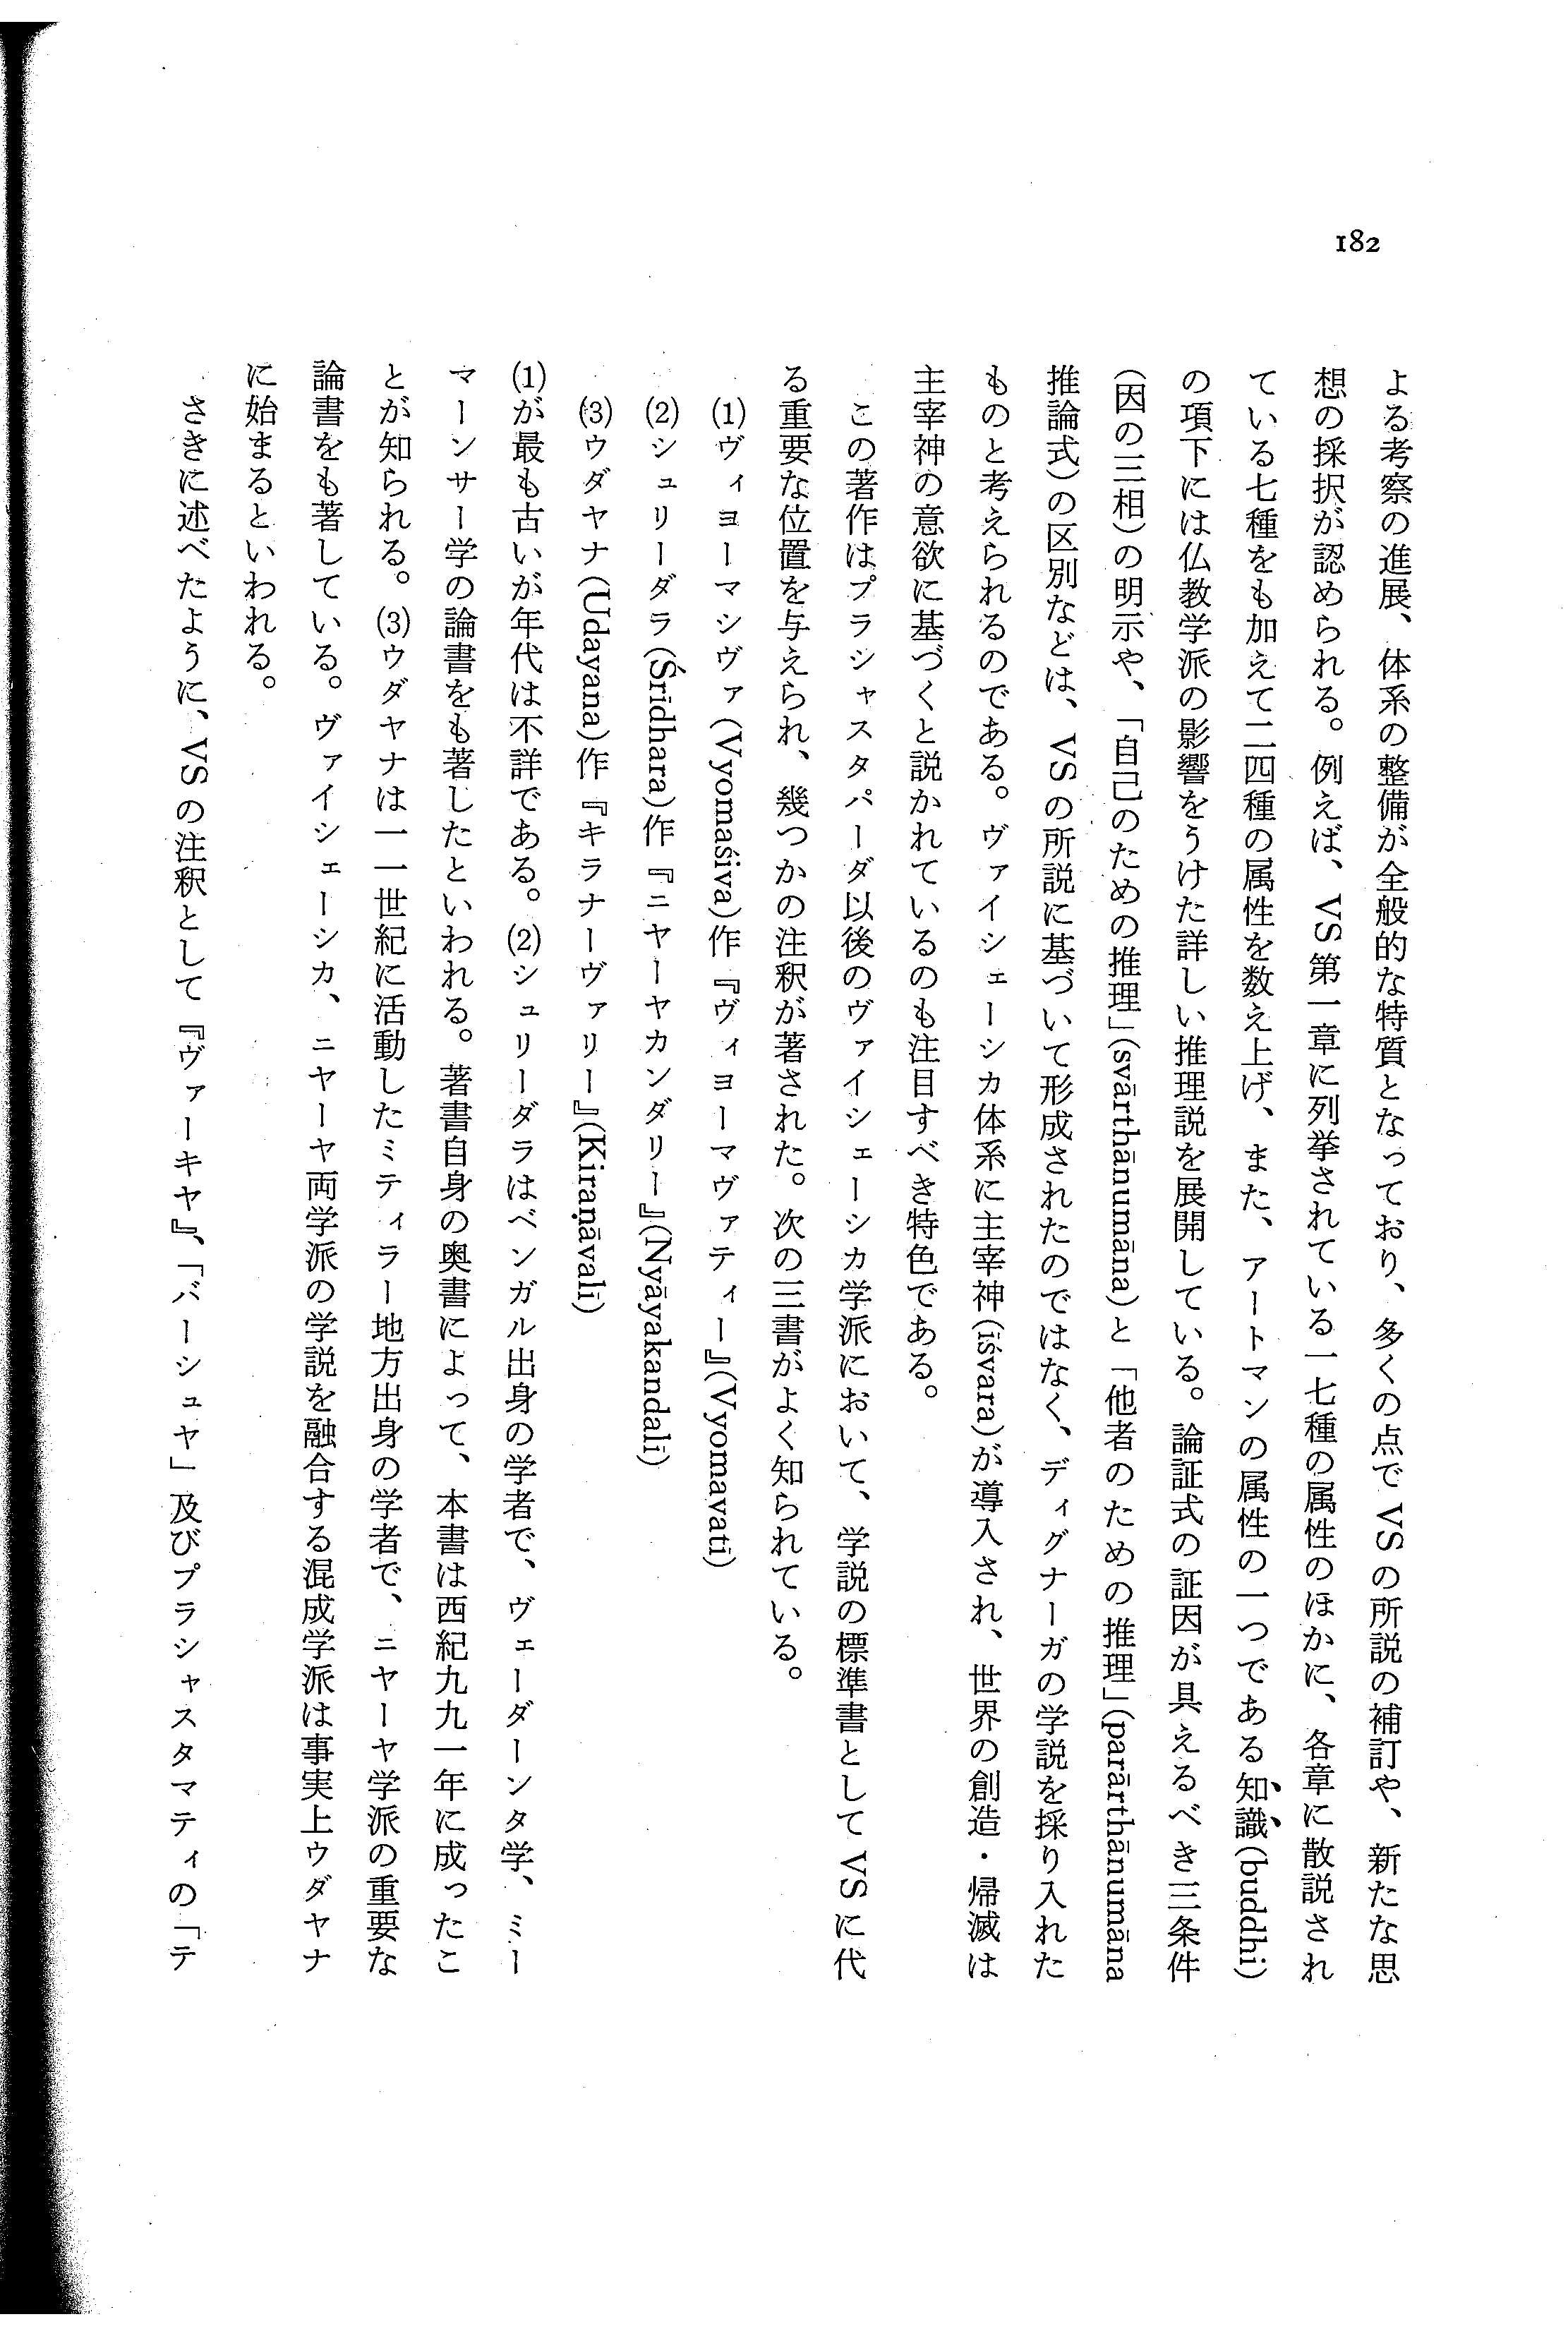 182
よる考察の進展、体系の整備が全般的な特質となっており、多くの点で VS の所説の補訂や、新たな思
想の採択が認められる。例えば、VS 第一章に列挙されている一七種の属性のほかに、各章に散説され
ている七種をも加えて二四種の属性を数え上げ、また、アートマンの属性の一つである知識(buddhi)
の項下には仏教学派の影響をうけた詳しい推理説を展開している。論証式の証因が具えるべき三条件
(因の三相)の明示や、「自己のための推理」(svārthānumāna)と「他者のための推理」(parārthānumāna
推論式)の区別などは、VS の所説に基づいて形成されたのではなく、ディグナーガの学説を採り入れた
ものと考えられるのである。ヴァイシェーシカ体系に主宰神(īśvara)が導入され、世界の創造・帰滅は
主宰神の意欲に基づくと説かれているのも注目すべき特色である。
この著作はプラシャスタパーダ以後のヴァイシェーシカ学派において、学説の標準書として VS に代
る重要な位置を与えられ、幾つかの注釈が著された。次の三書がよく知られている。
(1)ヴィヨーマシヴァ(Vyomaśiva)作『ヴィヨーマヴァティー』(Vyomavatī)
(2)シュリーダラ(Śrīdhara)作『ニヤーヤカンダリー』(Nyāyakandalī)
(3)ウダヤナ(Udayana)作『キラナーヴァリー』(Kiraṇāvalī)
(1)が最も古いが年代は不詳である。(2)シュリーダラはベンガル出身の学者で、ヴェーダーンタ学、ミー
マーンサー学の論書をも著したといわれる。著書自身の奥書によって、本書は西紀九九一年に成ったこ
とが知られる。(3)ウダヤナは一一世紀に活動したミティラー地方出身の学者で、ニヤーヤ学派の重要な
論書をも著している。ヴァイシェーシカ、ニヤーヤ両学派の学説を融合する混成学派は事実上ウダヤナ
に始まるといわれる。
さきに述べたように、VS の注釈として『ヴァーキヤ』、「バーシュヤ」及びプラシャスタマティの「テ